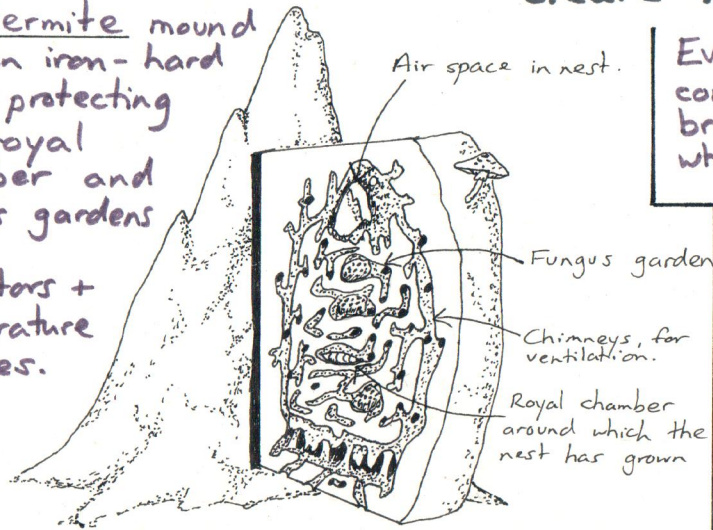 ermite mound
n iron-hard
protecting
oyal
ber and
s gardens
tors +
rature
es.
Air space in nest.
Ev
co
br
wh
Fungus garden
Chimneys, for
ventilation.
Royal chamber
around which the
nest has grown